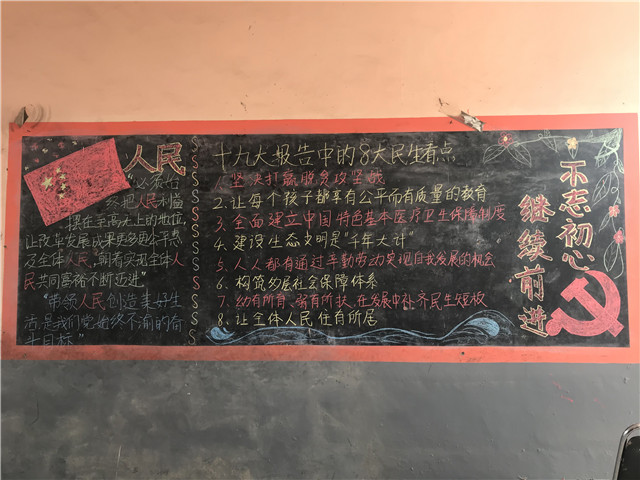 人民
"必须始
终把人民利益
摆在至高无上的地位,
让改革发展成果更多更公平惠
及全体人民,朝着实现全体人
民共同富裕不断迈进"
"带领人民创造美好生
活,是我们党始终不渝的奋
斗目标"
十九大报告中的8大民生看点
1.坚决打赢脱贫攻坚战
2.让每个孩子都享有公平而有质量的教育
3.全面建立中国特色基本医疗卫生保障制度
4.建设生态文明是"千年大计"
5.人人都有通过辛勤劳动实现自我发展的机会
6.构筑多层社会保障体系
7.幼有所育、弱有所扶,在发展中补齐民生短板
8.让全体人民住有所居
不忘初心
继续前进